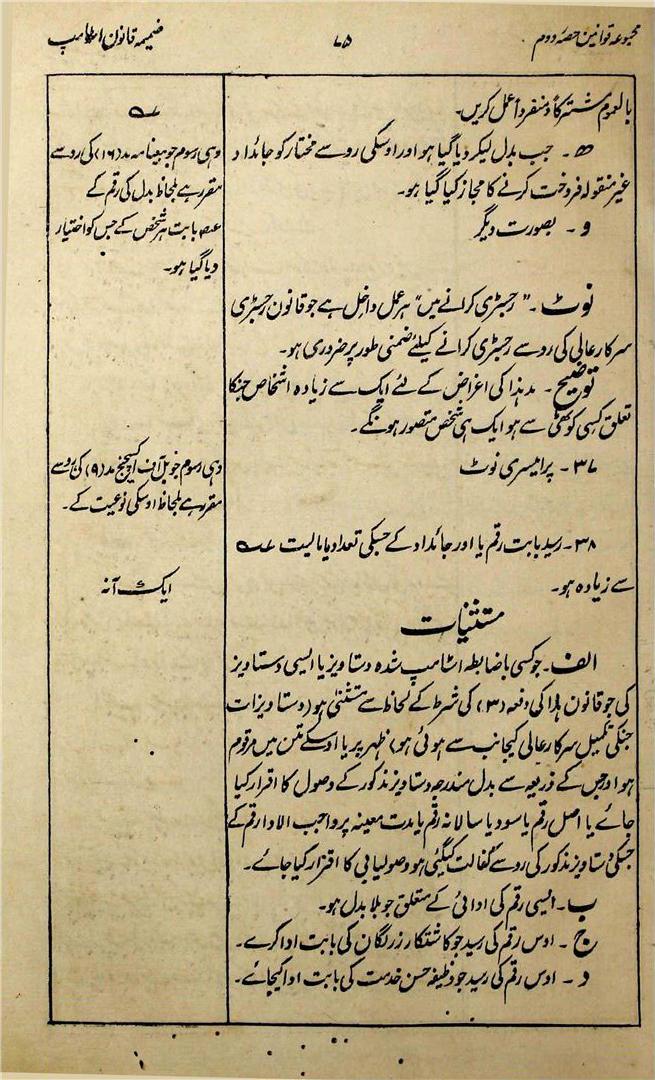 مجموعہ قوانین حصہ دوم
۷۵
ضمیمہ قانون اسٹامپ
بالعموم مشترکاً و منفرداً عمل کریں۔
ھ۔ جب بدل لیکر دیا گیا ہو اور اوسکی رو سے مختار کو جائداد
غیر منقولہ فروخت کرنے کا مجاز کیا گیا ہو۔
و۔ بصورت دیگر
نوٹ۔ "رجسٹری کرانے میں" ہر عمل داخل ہے جو قانون رجسٹری
سرکار عالی کی رو سے رجسٹری کرانے کیلئے ضمنی طور پر ضروری ہو۔
توضیح۔ مد ہذا کی اغراض کے لئے ایک سے زیادہ اشخاص جنکا
تعلق کسی کوٹھی سے ہو ایک ہی شخص متصور ہونگے۔
۳۷۔ پرامیسری نوٹ
۳۸۔ رسید بابت رقم یا اور جائداد کے جسکی تعداد یا مالیت
سے زیادہ ہو۔
مستثنیات
الف۔ جو کسی باضابطہ اسٹامپ شدہ دستاویز یا ایسی دستاویز
کی جو قانون ہذا کی دفعہ (۳) کی شرط کے لحاظ سے مستثنیٰ ہو (دستاویزات
جنکی تکمیل سرکار عالی کیجانب سے ہوئی ہو) ظہر پر یا اوسکے متن میں مرقوم
ہو اور جس کے ذریعہ سے بدل مندرجہ دستاویز مذکور کے وصول کا اقرار کیا
جائے یا اصل رقم یا سود یا سالانہ رقم یا مدت معینہ پر واجب الادا رقم کے
جسکی دستاویز مذکور کی رو سے کفالت کیگئی ہو وصولیابی کا اقرار کیا جائے۔
ب۔ ایسی رقم کی ادائی کے متعلق جو بلا بدل ہو۔
ج۔ اوس رقم کی رسید جو کاشتکار زر لگان کی بابت ادا کرے۔
د۔ اوس رقم کی رسید جو وظیفہ حسن خدمت کی بابت ادا کیجائے۔
وہی رسوم جو بیعنامہ مد (۱۶) کی رو سے
مقرر ہے بلحاظ بدل کی رقم کے
بابت ہر شخص کے جس کو اختیار
دیا گیا ہو۔
وہی رسوم جو بل آف اکسچنج مد (۹) کی رو سے
مقرر ہے بلحاظ اوسکی نوعیت کے۔
ایک آنہ